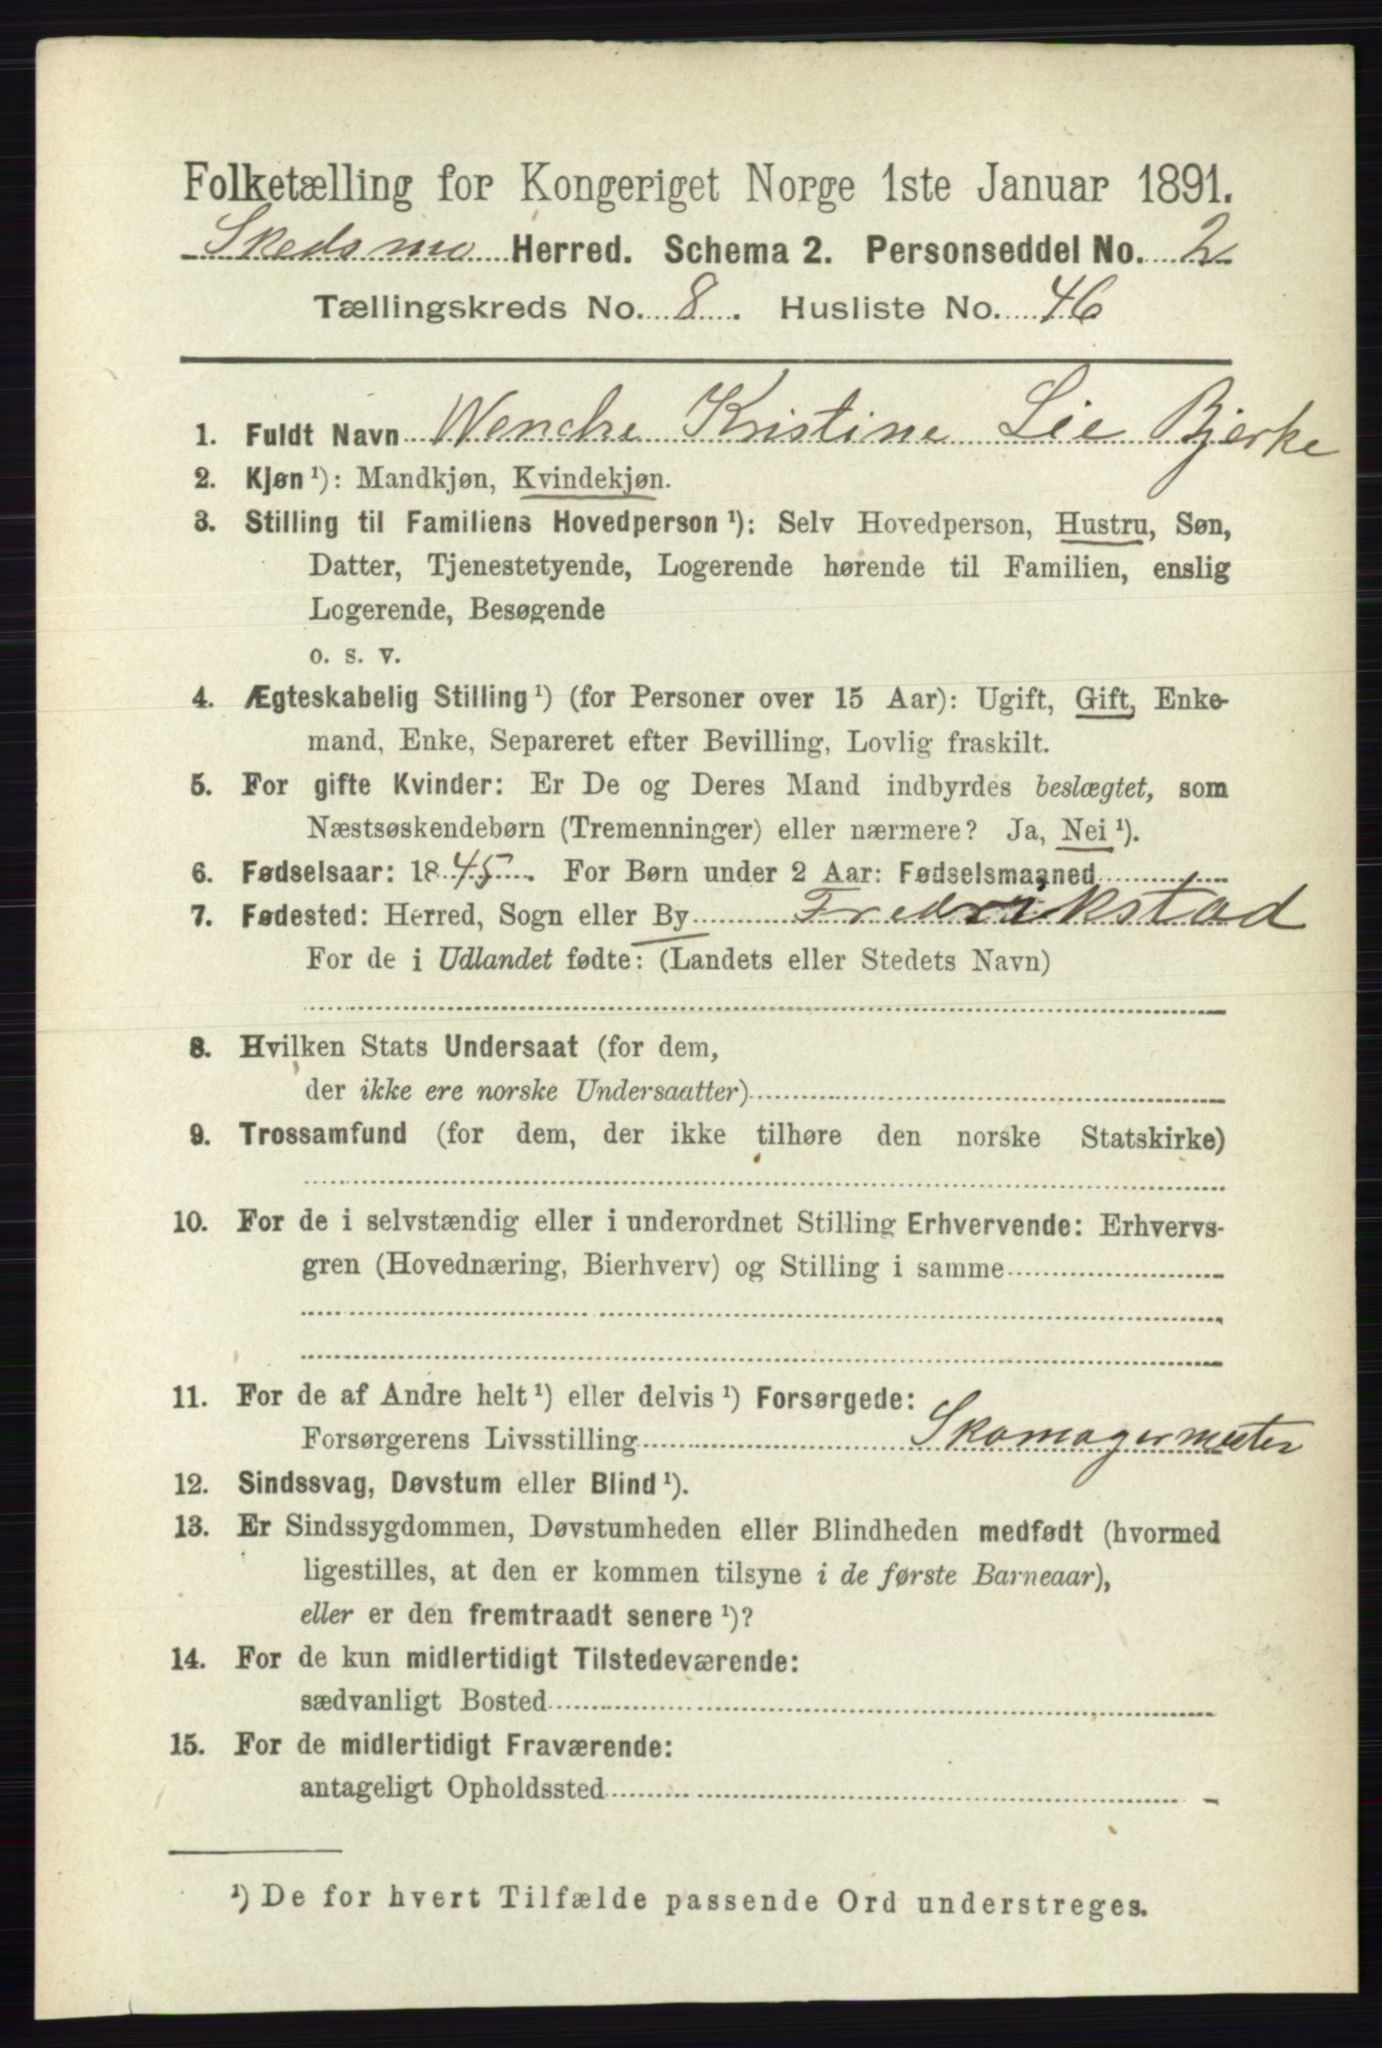 Folketælling for Kongeriget Norge 1ste Januar 1891.
Skedsmo Herred. Schema 2. Personseddel No. 2
Tællingskreds No. 8. Husliste No. 46
1. Fuldt Navn Wenche Kristine Lie Bjerke
2. Kjøn ¹): Mandkjøn, Kvindekjøn.
3. Stilling til Familiens Hovedperson ¹): Selv Hovedperson, Hustru, Søn,
Datter, Tjenestetyende, Logerende hørende til Familien, enslig
Logerende, Besøgende
o. s. v.
4. Ægteskabelig Stilling ¹) (for Personer over 15 Aar): Ugift, Gift, Enke-
mand, Enke, Separeret efter Bevilling, Lovlig fraskilt.
5. For gifte Kvinder: Er De og Deres Mand indbyrdes beslægtet, som
Næstsøskendebørn (Tremenninger) eller nærmere? Ja, Nei ¹).
6. Fødselsaar: 1845. For Børn under 2 Aar: Fødselsmaaned
7. Fødested: Herred, Sogn eller By Fredrikstad
For de i Udlandet fødte: (Landets eller Stedets Navn)
8. Hvilken Stats Undersaat (for dem,
der ikke ere norske Undersaatter)
9. Trossamfund (for dem, der ikke tilhøre den norske Statskirke)
10. For de i selvstændig eller i underordnet Stilling Erhvervende: Erhvervs-
gren (Hovednæring, Bierhverv) og Stilling i samme
11. For de af Andre helt ¹) eller delvis ¹) Forsørgede:
Forsørgerens Livsstilling Skomagermester
12. Sindssvag, Døvstum eller Blind ¹).
13. Er Sindssygdommen, Døvstumheden eller Blindheden medfødt (hvormed
ligestilles, at den er kommen tilsyne i de første Barneaar),
eller er den fremtraadt senere ¹)?
14. For de kun midlertidigt Tilstedeværende:
sædvanligt Bosted
15. For de midlertidigt Fraværende:
antageligt Opholdssted
¹) De for hvert Tilfælde passende Ord understreges.